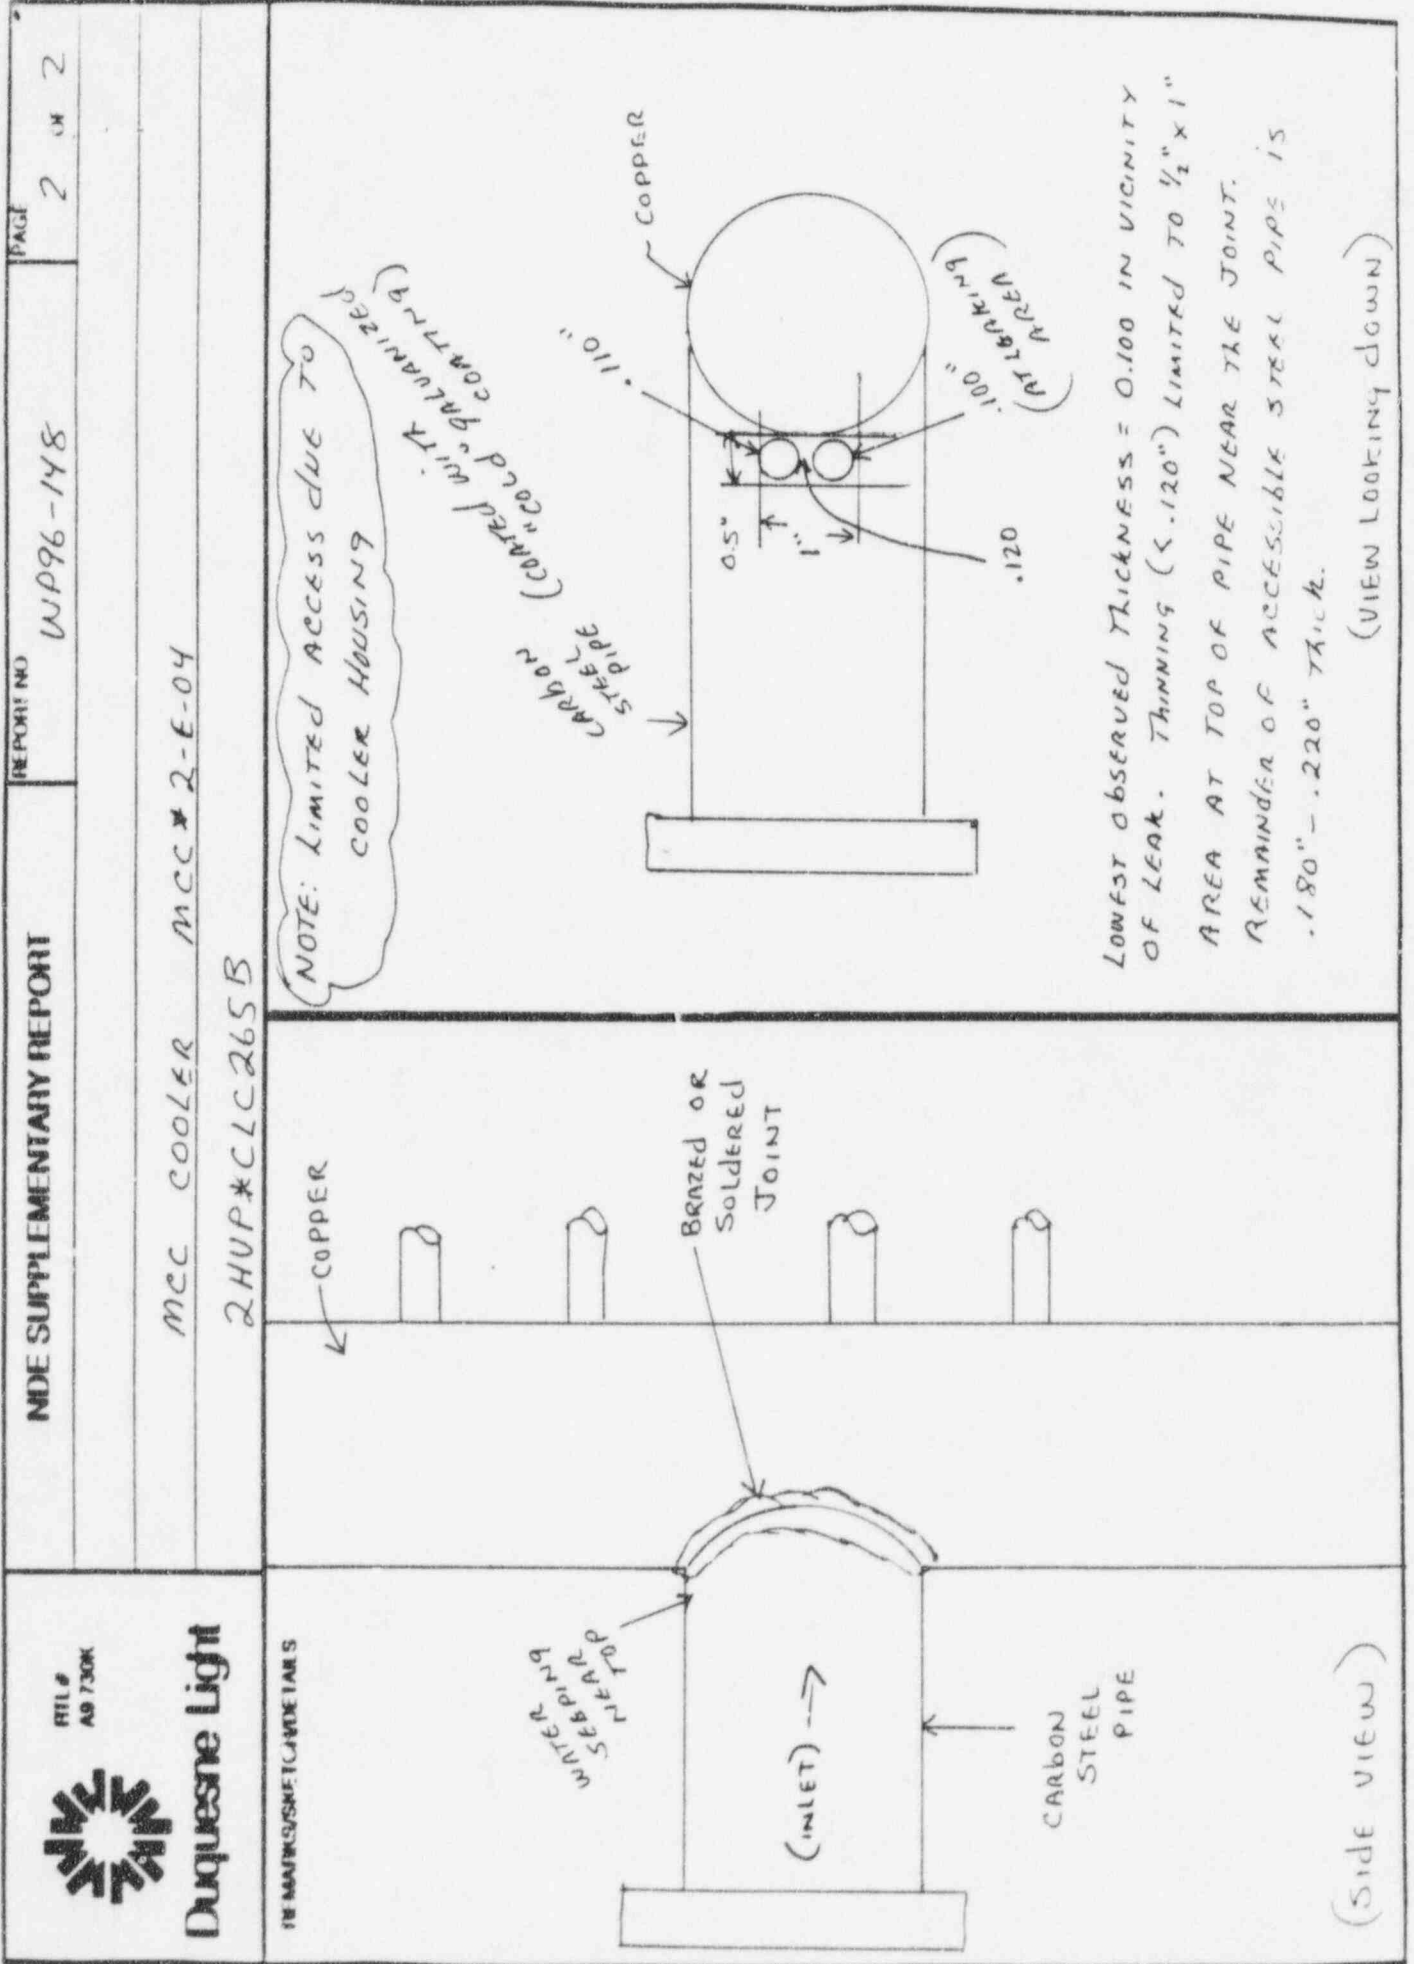 RTL #
A9 730K
Duquesne Light
NDE SUPPLEMENTARY REPORT
REPORT NO
WP96-148
PAGE
2 OF 2
MCC COOLER MCC*2-E-04
2HVP*CLC265B
REMARKS/SKETCH/DETAILS
COPPER
BRAZED OR
SOLDERED
JOINT
WATER
SEEPING
NEAR
TOP
(INLET)
CARBON
STEEL
PIPE
(SIDE VIEW)
NOTE: LIMITED ACCESS DUE TO
COOLER HOUSING
CARBON
STEEL
PIPE
(COATED WITH
"COLD" GALVANIZED
COATING)
.110"
COPPER
0.5"
1"
.100"
(AT LEAKING
AREA)
.120
LOWEST OBSERVED THICKNESS = 0.100 IN VICINITY
OF LEAK. THINNING (<.120") LIMITED TO 1/2" x 1"
AREA AT TOP OF PIPE NEAR THE JOINT.
REMAINDER OF ACCESSIBLE STEEL PIPE IS
.180" - .220" THICK.
(VIEW LOOKING DOWN)